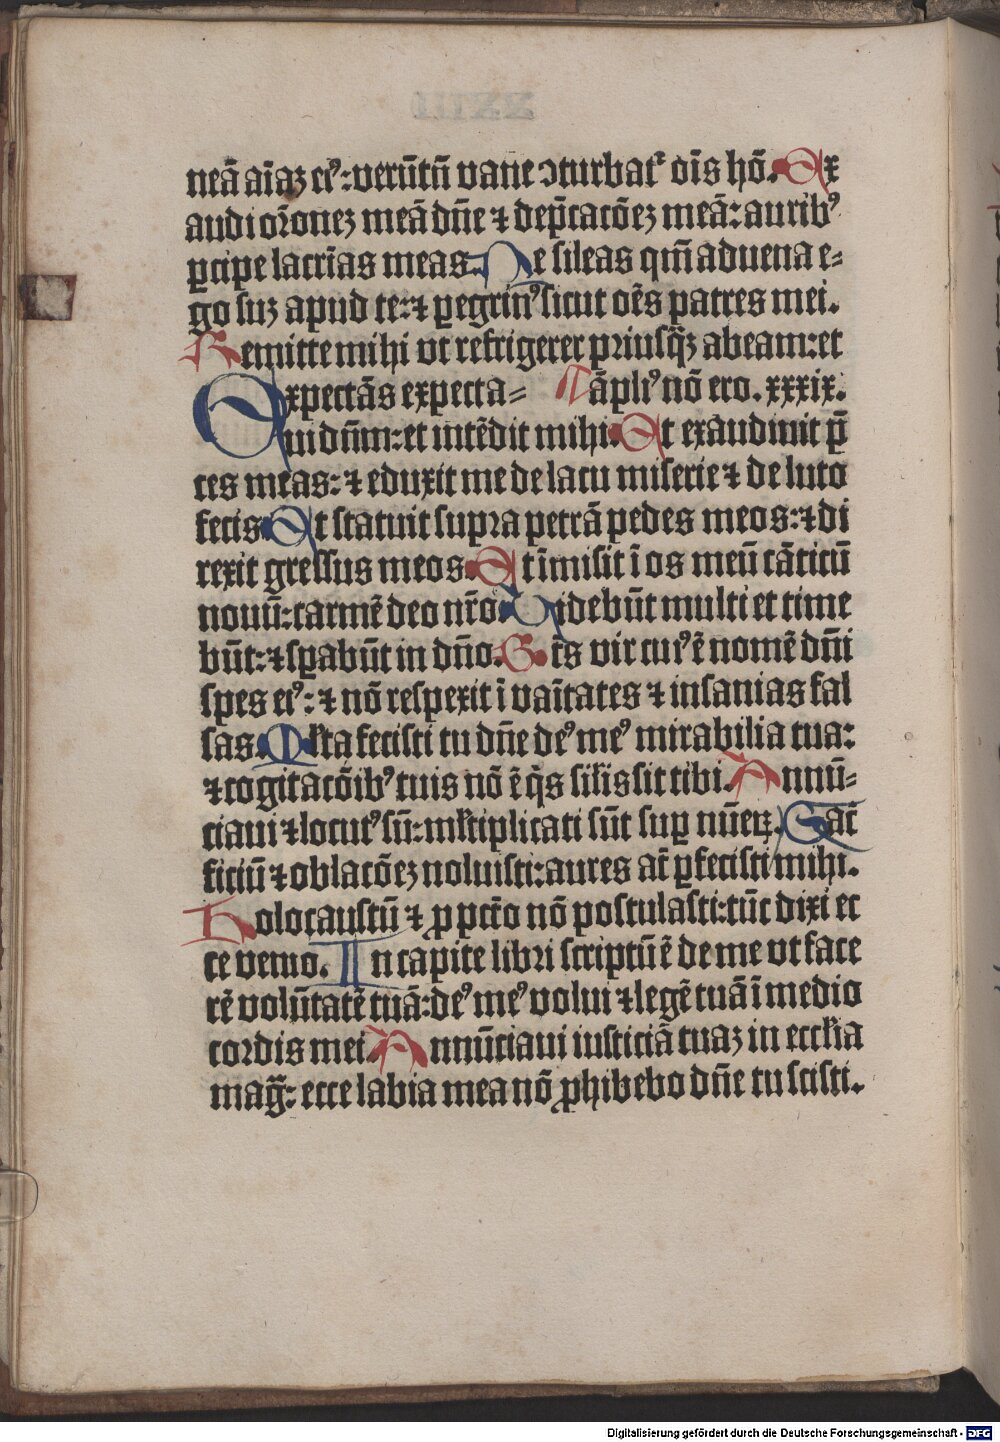 neā aīaꝫ eiꝰ: verūtn̄ vane ↄturbat᷑ oīs hō. Ex
audi orōneꝫ meā dn̄e ⁊ dep̄cacōeꝫ meā: auribꝰ
ꝑcipe lacrīas meas. Ne sileas qm̄ aduena e⸗
go suꝫ apud te: ⁊ ꝑegrinꝰ sicut oēs patres mei.
Remitte mihi vt refrigerer priusq̄ꝫ abeam: et
Expectās expecta⸗ āpliꝰ nō ero. xxxix.
ui dn̄m: et intēdit mihi. Et exaudiuit p̄
ces meas: ⁊ eduxit me de lacu miserie ⁊ de luto
fecis. Et statuit supra petrā pedes meos: ⁊ di
rexit gressus meos. Et īmisit ī os meū cāticū
nouū: carmē deo nr̄o. Videbūt multi et time
būt: ⁊ sꝑabūt in dn̄o. Bt̄s vir cuiꝰ ē nomē dn̄i
spes eiꝰ: ⁊ nō respexit ī vaītates ⁊ insanias fal
sas. Ml̄ta fecisti tu dn̄e deꝰ meꝰ mirabilia tua:
⁊ cogitacōibꝰ tuis nō ē q̄s sil̄is sit tibi. Annū⸗
ciaui ⁊ locutꝰ sū: ml̄tiplicati sūt suꝑ nūeꝝ. Sac̄
ficiū ⁊ oblacōeꝫ noluisti: aures at̄ ꝑfecisti mihi.
Holocaustū ⁊ ꝓ pctō nō postulasti: tūc dixi ec
ce venio. In capite libri scriptū ē de me vt face
rē volūtatē tuā: deꝰ meꝰ volui ⁊ legē tuā ī medio
cordis mei. Annūciaui iusticiā tuaꝫ in eccl̄ia
maḡ: ecce labia mea nō ꝓhibebo dn̄e tu scisti.
Digitalisierung gefördert durch die Deutsche Forschungsgemeinschaft - DFG